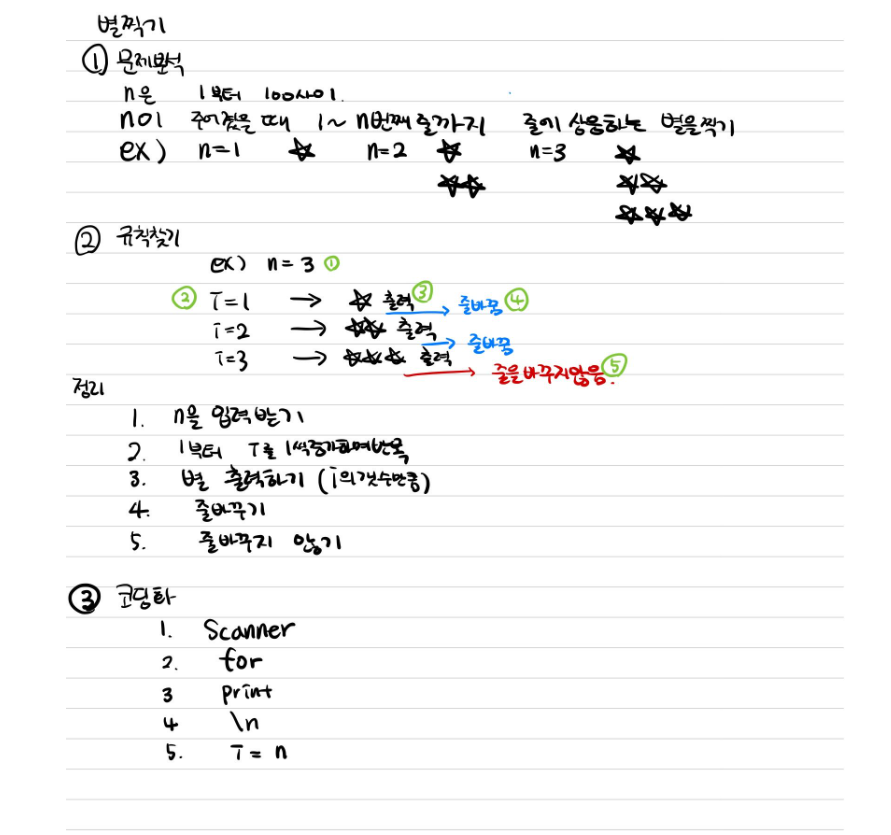 별찍기
① 문제분석
n은 1부터 100사이.
n이 주어졌을 때 1~ n번째 줄까지 줄에 상응하는 별을찍기
ex) n=1 ☆ n=2 ☆ n=3 ☆
☆☆ ☆☆
☆☆☆
② 규칙찾기
ex) n = 3 ①
② i=1 → ☆ 출력 ③ → 줄바꿈 ④
i=2 → ☆☆ 출력 → 줄바꿈
i=3 → ☆☆☆ 출력 → 줄을바꾸지않음. ⑤
정리
1. n을 입력받기
2. 1부터 i를 1씩증가하며반복
3. 별 출력하기 (i의갯수만큼)
4. 줄바꾸기
5. 줄바꾸지 않기
③ 코딩화
1. Scanner
2. for
3 print
4 \n
5. i = n